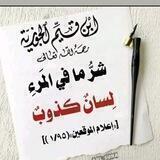 ابن قيم الجوزية
رحمه الله تعالى
شرُّ ما في المرءِ
لسانٌ كذوبٌ
[إعلام الموقعين (١/٩٥)]